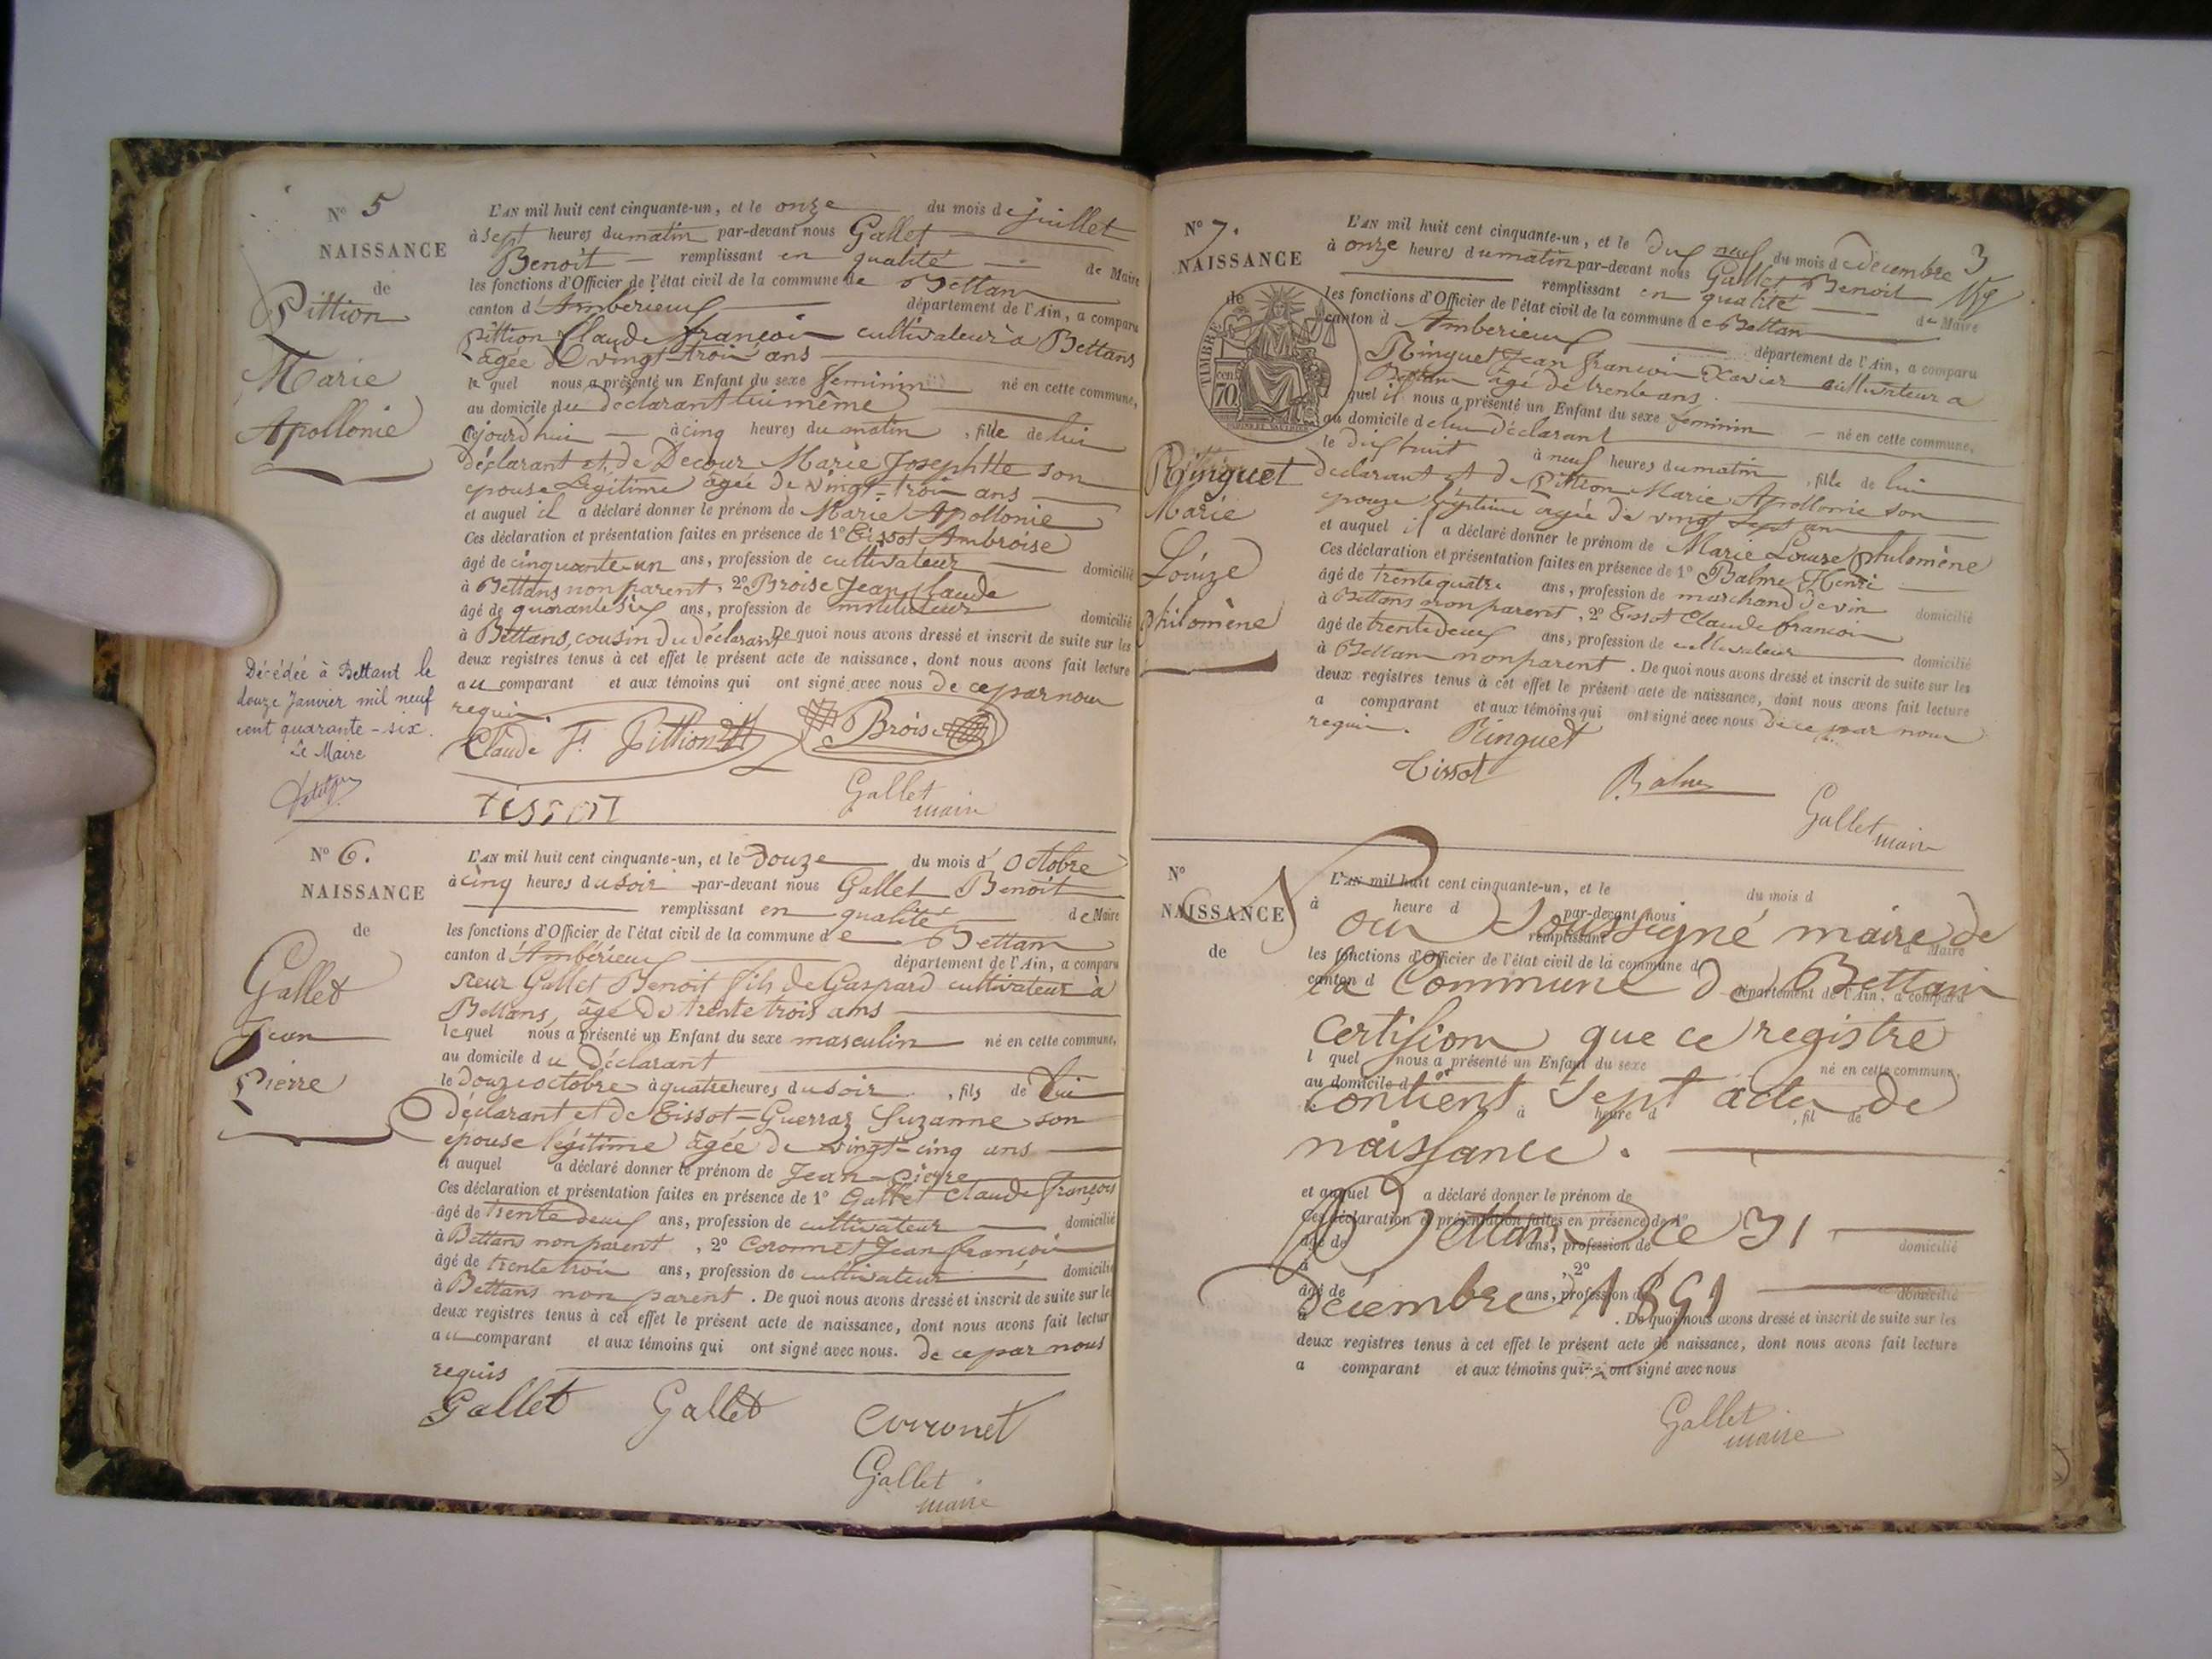 N° 5
NAISSANCE
de
Pittion
Marie
Apollonie
L'AN mil huit cent cinquante-un, et le onze du mois de juillet
à sept heures du matin par-devant nous Gallet
Benoit remplissant en qualité de Maire
les fonctions d'Officier de l'état civil de la commune de Bettans
canton d'Ambérieux département de l'Ain, a comparu
Pittion Claude françois cultivateur à Bettans
âgée de vingt-trois ans
le quel nous a présenté un Enfant du sexe feminin né en cette commune,
au domicile du déclarant lui même
ajourd'hui à cinq heures du matin, fille de lui
déclarant et de Decour Marie Josephtte son
epouse Légitime âgée de vingt-trois ans
et auquel il a déclaré donner le prénom de Marie Apollonie
Ces déclaration et présentation faites en présence de 1° Tissot Ambroise
âgé de cinquante-un ans, profession de cultivateur domicilié
à Bettans non parent, 2° Broise Jean Claude
âgé de quarante six ans, profession de instituteur domicilié
à Bettans, cousin du déclarant De quoi nous avons dressé et inscrit de suite sur les
deux registres tenus à cet effet le présent acte de naissance, dont nous avons fait lecture
au comparant et aux témoins qui ont signé avec nous de ce par nous
requis.
Claude F. Pittion Broise
Tissot Gallet
maire
Décédée à Bettant le
douze Janvier mil neuf
cent quarante-six.
Le Maire
N° 6.
NAISSANCE
de
Gallet
Jean
Pierre
L'AN mil huit cent cinquante-un, et le douze du mois d'octobre
à cinq heures du soir par-devant nous Gallet Benoit
remplissant en qualité de Maire
les fonctions d'Officier de l'état civil de la commune de Bettans
canton d'Ambérieux département de l'Ain, a comparu
sieur Gallet Benoit fils de Gaspard cultivateur à
Bettans, âgé de trente trois ans
lequel nous a présenté un Enfant du sexe masculin né en cette commune,
au domicile du déclarant
le douze octobre à quatre heures du soir, fils de lui
déclarant et de Tissot-Guerraz Suzanne son
épouse légitime âgée de vingt-cinq ans
et auquel a déclaré donner le prénom de Jean-Pierre
Ces déclaration et présentation faites en présence de 1° Gallet Claude françois
âgé de trente deux ans, profession de cultivateur domicilié
à Bettans non parent, 2° Coronnet Jean françois
âgé de trente trois ans, profession de cultivateur domicilié
à Bettans non parent. De quoi nous avons dressé et inscrit de suite sur le
deux registres tenus à cet effet le présent acte de naissance, dont nous avons fait lectur
au comparant et aux témoins qui ont signé avec nous. de ce par nous
requis
Gallet Gallet Corronet
Gallet
maire
3
N° 7.
NAISSANCE
de
TIMBRE
70
Ringuet
Marie
Louize
philomène
L'AN mil huit cent cinquante-un, et le dix neuf du mois de décembre
à onze heures du matin par-devant nous Gallet Benoit
remplissant en qualité de Maire
les fonctions d'Officier de l'état civil de la commune de Bettan
canton d Amberieux département de l'Ain, a comparu
Ringuet Jean françois Xavier cultivateur a
Bettan âgé de trente ans
quel il nous a présenté un Enfant du sexe feminin né en cette commune,
au domicile de lui déclarant
le dix huit à neuf heures du matin, fille de lui
declarant et de Pittion Marie Apollonie son
epouze légitime agée de vingt sept an
et auquel il a déclaré donner le prénom de Marie Louize philomène
Ces déclaration et présentation faites en présence de 1° Balme Henri
âgé de trente quatre ans, profession de marchand de vin domicilié
à Bettans non parent, 2° Tissot Claude francois
âgé de trente deux ans, profession de cultivateur domicilié
à Bettan non parent. De quoi nous avons dressé et inscrit de suite sur les
deux registres tenus à cet effet le présent acte de naissance, dont nous avons fait lecture
a comparant et aux témoins qui ont signé avec nous de ce par nous
requis. Ringuet
Tissot Balme Gallet
maire
N°
NAISSANCE
de
L'AN mil huit cent cinquante-un, et le du mois d
à heure d par-devant nous
Nous Soussigné maire de
remplissant d Maire
les fonctions d'Officier de l'état civil de la commune d
la Commune de Bettans
canton d département de l'Ain, a comparu
certifions que ce registre
l quel nous a présenté un Enfant du sexe né en cette commune,
au domicile d
contient Sept actes de
le à heure d, fil de
naissance.
et auquel a déclaré donner le prénom de
Ces déclaration et présentation faites en présence de 1°
Bettans Le 31
âgé de ans, profession de domicilié
à, 2°
âgé de ans, profession de domicilié
Décembre 1851
à. De quoi nous avons dressé et inscrit de suite sur les
deux registres tenus à cet effet le présent acte de naissance, dont nous avons fait lecture
a comparant et aux témoins qui ont signé avec nous
Gallet
maire